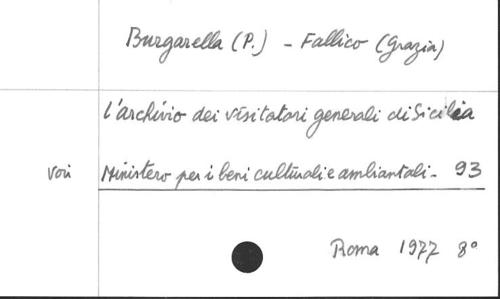 Burgarella (P.) - Fallico (Grazia)
l'archivio dei visitatori generali di Sicilia
voir Ministero per i beni culturali e ambiantali - 93
Roma 1977 8°